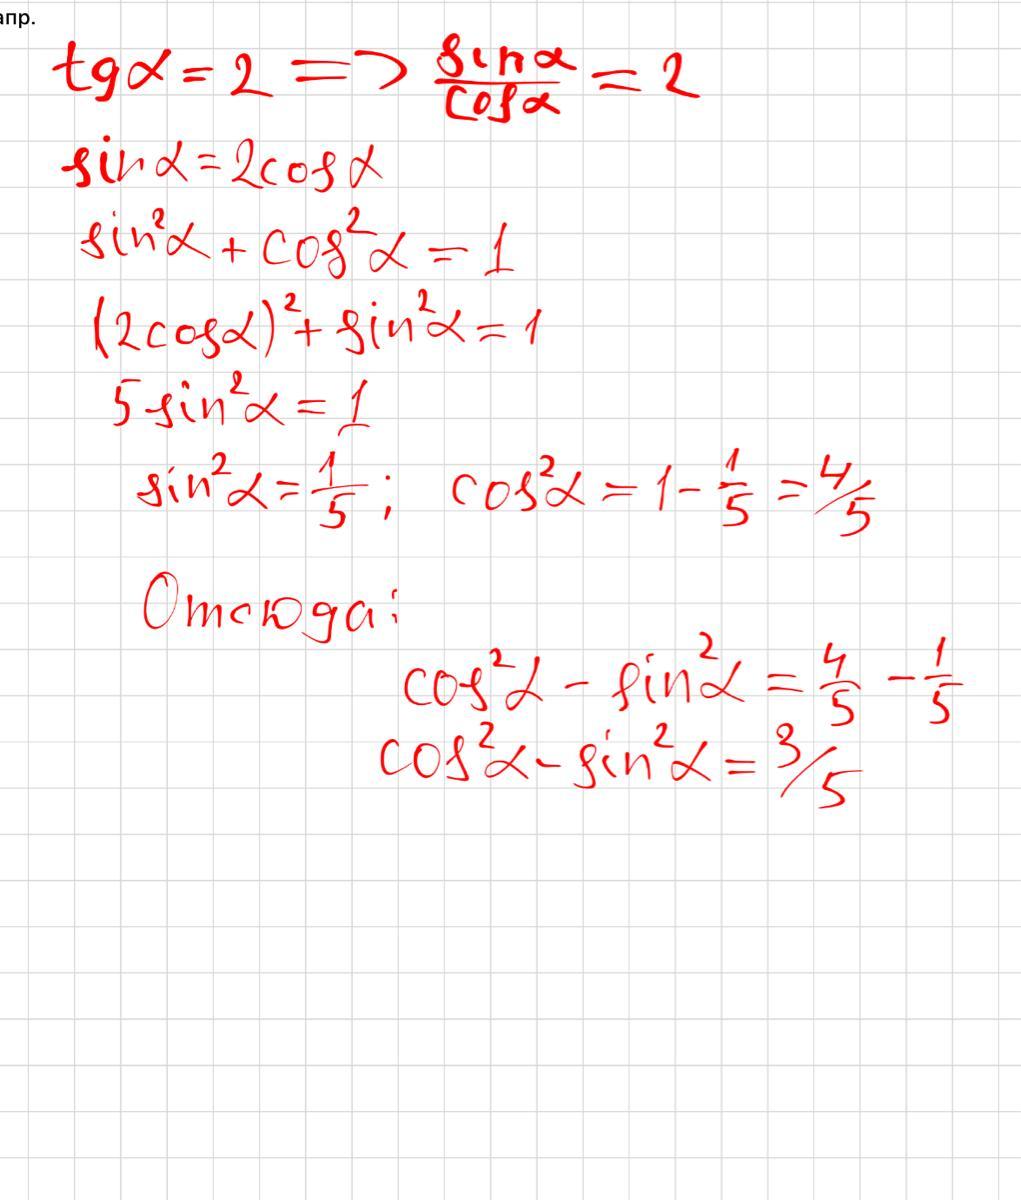 апр.
tgα = 2 => sinα/cosα = 2
sinα = 2cosα
sin²α + cos²α = 1
(2cosα)² + sin²α = 1
5sin²α = 1
sin²α = 1/5; cos²α = 1 - 1/5 = 4/5
Отсюда:
cos²α - sin²α = 4/5 - 1/5
cos²α - sin²α = 3/5